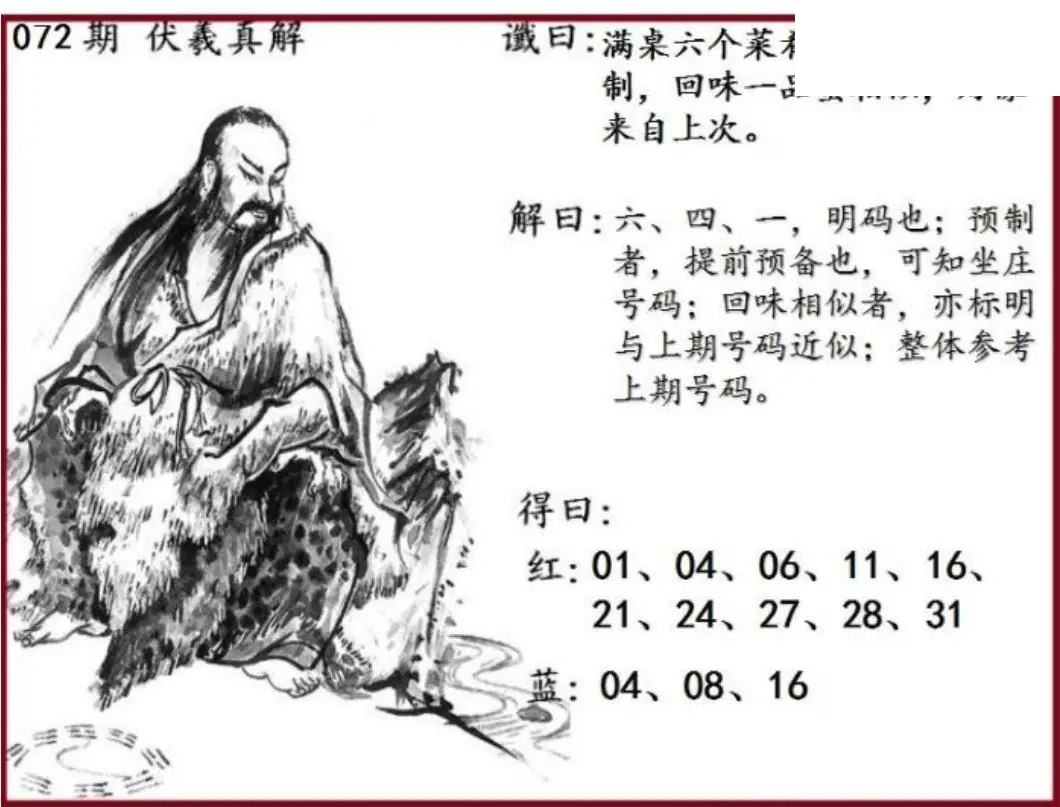 072期 伏羲真解
谶曰：满桌六个菜
制，回味一
来自上次。
解曰：六、四、一，明码也；预制
者，提前预备也，可知坐庄
号码；回味相似者，亦标明
与上期号码近似；整体参考
上期号码。
得曰：
红：01、04、06、11、16、
21、24、27、28、31
蓝：04、08、16